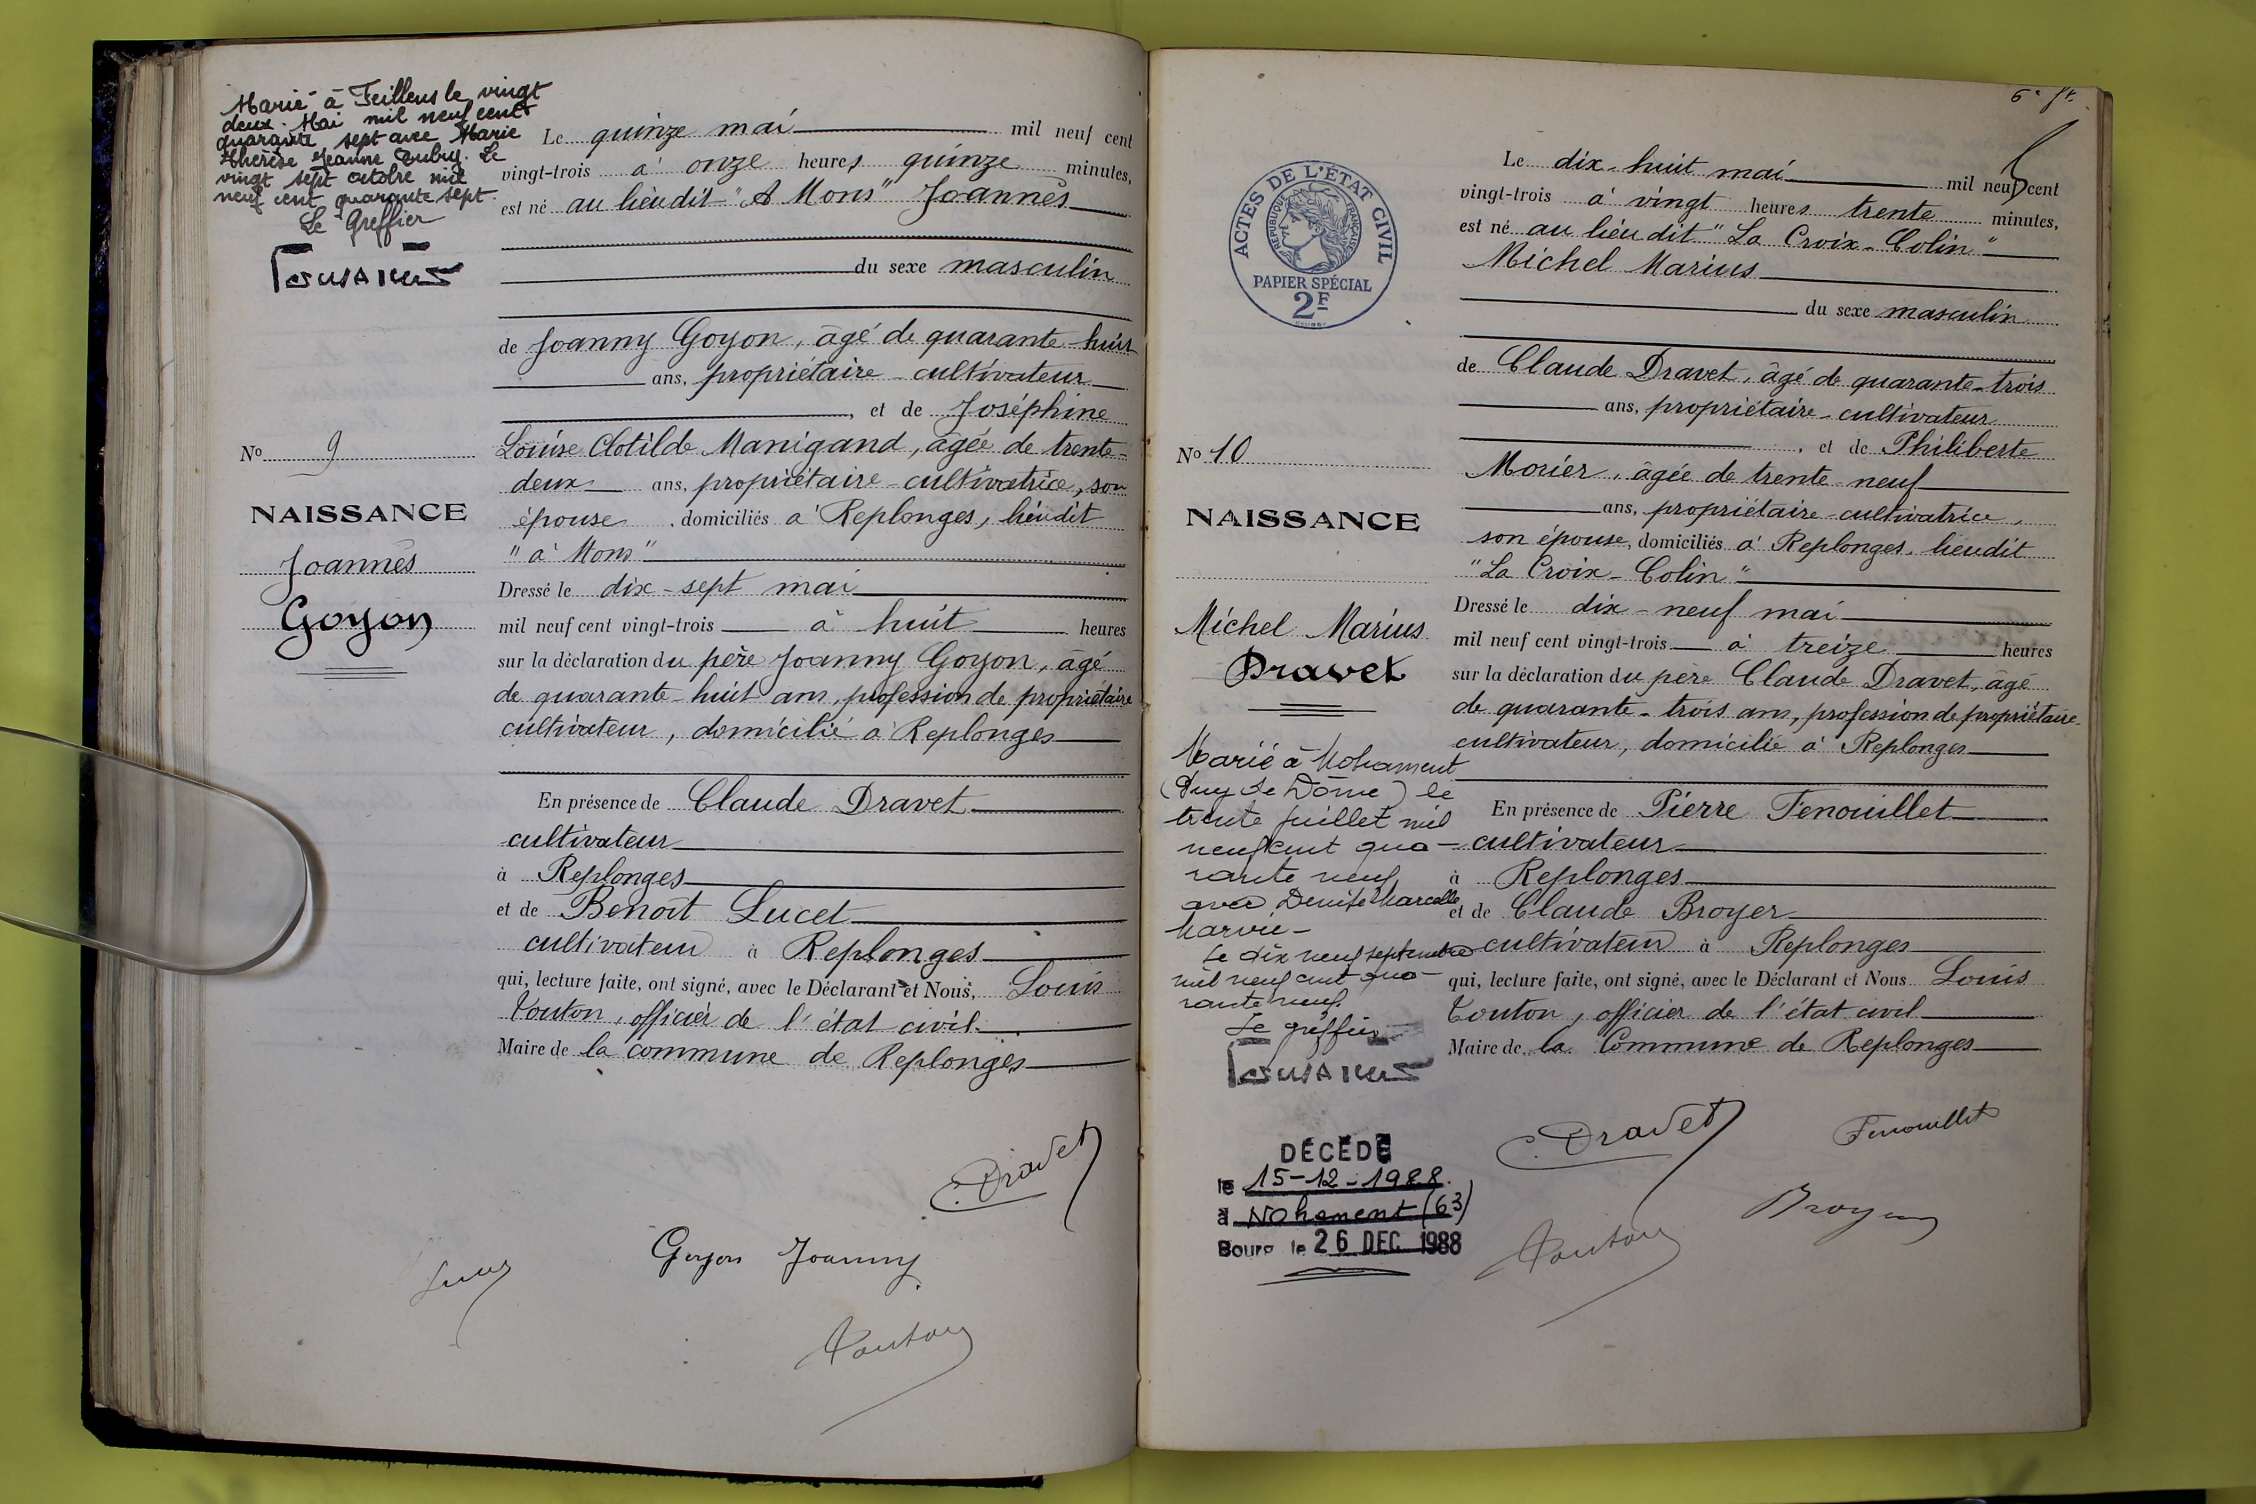 Marié à Feillens le vingt
deux Mai mil neuf cent
quarante sept avec Marie
Thérèse Jeanne Aubry. Le
vingt sept octobre mil
neuf cent quarante sept.
Le Greffier
Le quinze mai mil neuf cent
vingt-trois à onze heures quinze minutes,
est né au lieudit "A Mons" Joannès
du sexe masculin
de Joanny Goyon, âgé de quarante-huit
ans, propriétaire-cultivateur
, et de Joséphine
Louise Clotilde Manigand, âgée de trente-
deux ans, propriétaire-cultivatrice, son
épouse, domiciliés à Replonges, lieudit
"à Mons"
Dressé le dix-sept mai
mil neuf cent vingt-trois à huit heures
sur la déclaration du père Joanny Goyon, âgé
de quarante-huit ans, profession de propriétaire
cultivateur, domicilié à Replonges
En présence de Claude Dravet
cultivateur
à Replonges
et de Benoît Lucet
cultivateur à Replonges
qui, lecture faite, ont signé, avec le Déclarant et Nous, Louis
Touton, officier de l'état civil.
Maire de la commune de Replonges
No 9
NAISSANCE
Joannès
Goyon
C. Dravet
Goyon Joanny
Touton
6e ft.
ACTES DE L'ÉTAT CIVIL
RÉPUBLIQUE FRANÇAISE
PAPIER SPÉCIAL
2F
Le dix-huit mai mil neuf cent
vingt-trois à vingt heures trente minutes,
est né au lieudit "La Croix-Colin"
Michel Marius
du sexe masculin
de Claude Dravet, âgé de quarante-trois
ans, propriétaire-cultivateur
, et de Philiberte
Morier, âgée de trente-neuf
ans, propriétaire-cultivatrice,
son épouse, domiciliés à Replonges, lieudit
"La Croix-Colin"
Dressé le dix-neuf mai
mil neuf cent vingt-trois à treize heures
sur la déclaration du père Claude Dravet, âgé
de quarante-trois ans, profession de propriétaire
cultivateur, domicilié à Replonges
En présence de Pierre Fenouillet
cultivateur
à Replonges
et de Claude Broyer
cultivateur à Replonges
qui, lecture faite, ont signé, avec le Déclarant et Nous Louis
Touton, officier de l'état civil
Maire de la Commune de Replonges
No 10
NAISSANCE
Michel Marius
Dravet
Marié à Nohanent
(Puy de Dôme) le
trente juillet mil
neuf cent qua-
rante neuf
avec Denise Marcelle
Le dix neuf septembre
mil neuf cent qua-
rante neuf.
Le greffier
DÉCÉDÉ
le 15-12-1988.
à Nohanent (63)
Bourg le 26 DEC. 1988
C. Dravet
Fenouillet
Broyer
Touton